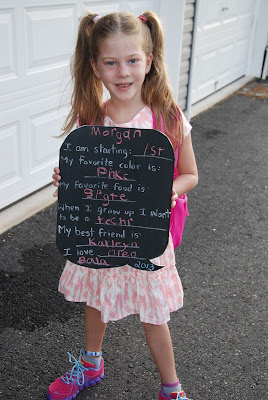 Morgan
I am starting: 1st
My favorite color is:
Pink
My favorite food is:
SPgte
when I grow up I want
to be a techr
My best friend is:
Kaileyn
I love Oreo
Bala 2013